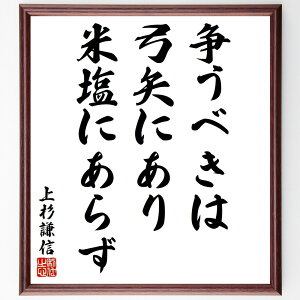 争うべきは
弓矢にあり
米塩にあらず
上杉謙信